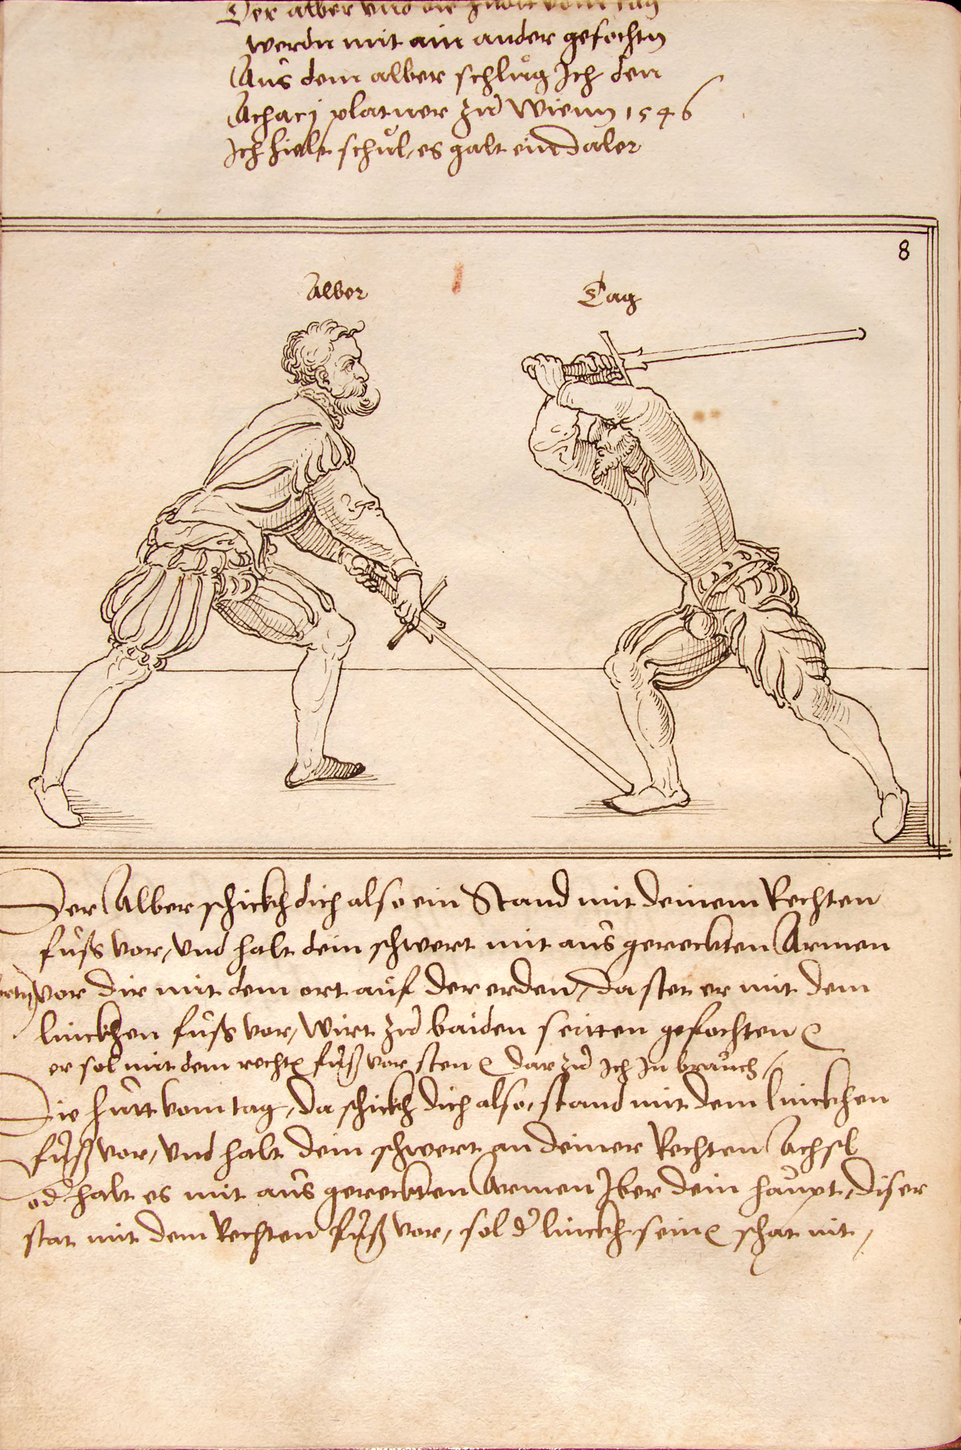 Der alber und die huot vom tag
werdn mit ain ander gefochtn
Aus dem alber schlůg Ich den
Achacj platner zů Wienn 1546
Ich hielt schůl, es galt ein daler
8
Alber
Tag
Der Alber schickh dich also ein Stand mit deinem Rechten
fůss vor, und halt dein schwert mit aůs gereckten Armen
vor dir mit dem ort aůf der erden, da stet er mit dem
linckhen fůss vor, wirt zů baiden seitten gefochten
er sol mit dem recht fůß vor sten dar zů Ich In braůch,
Die hůtt vom tag, da schickh dich also, stand mit dem linckhen
fůß vor, und halt dein schwert an deiner Rechten Achsl
od halt es mit aůs gereckten Armen Iber dein haůpt, diser
stat mit dem Rechten fůß vor, sol d linckh sein schat nit,